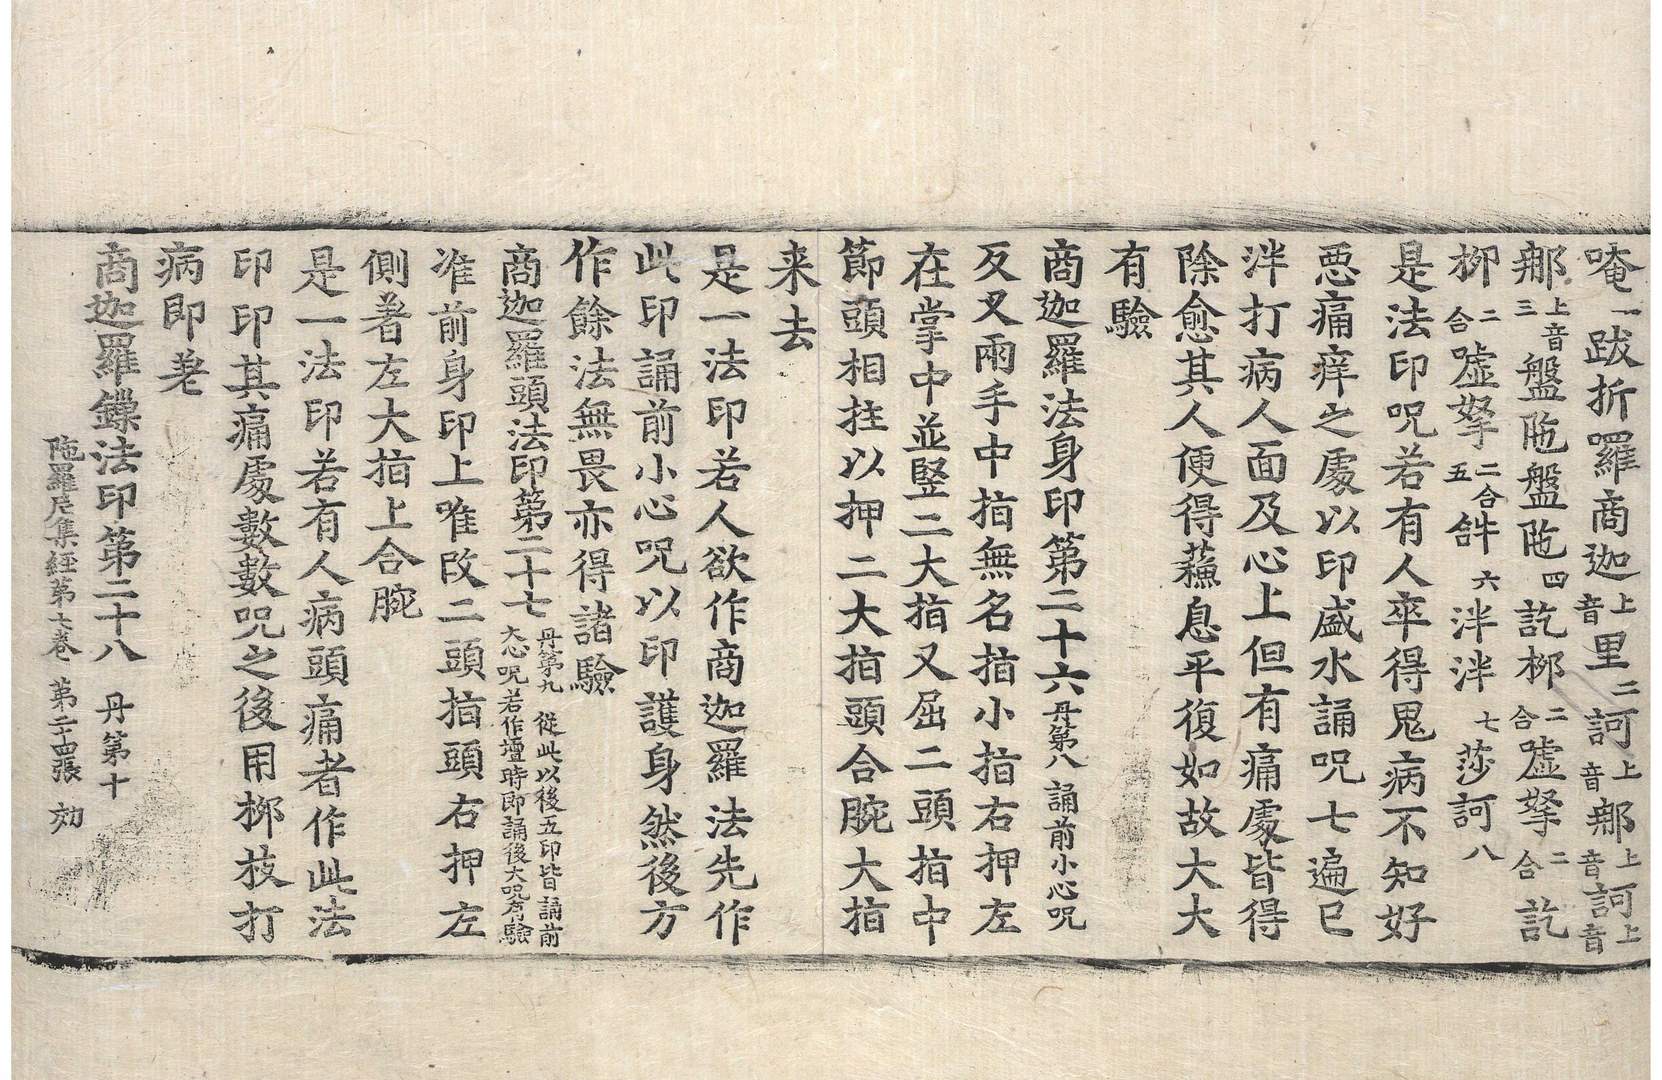 唵一跋折羅商迦上音里二訶上音那上音訶上音
那上音三盤陁盤陁四訖栁二合嘘拏二合訖
栁二合嘘拏二合五𤙖六泮泮七莎訶八
是法印呪若有人卒得鬼病不知好
惡痛痒之處以印盛水誦呪七遍已
泮打病人面及心上但有痛處皆得
除愈其人便得蘓息平復如故大大
有驗
商迦羅法身印第二十六丹第八 誦前小心呪
反叉兩手中指無名指小指右押左
在掌中並竪二大指又屈二頭指中
節頭相拄以押二大指頭合腕大指
来去
是一法印若人欲作商迦羅法先作
此印誦前小心呪以印護身然後方
作餘法無畏亦得諸驗
商迦羅頭法印第二十七丹第九 從此以後五印皆誦前大心呪若作壇時即誦後大呪有驗
准前身印上唯改二頭指頭右押左
側著左大指上合腕
是一法印若有人病頭痛者作此法
印印其痛處數數呪之後用栁枝打
病即差
商迦羅鏁法印第二十八 丹第十
陁羅尼集經第七卷 第二十四張 効